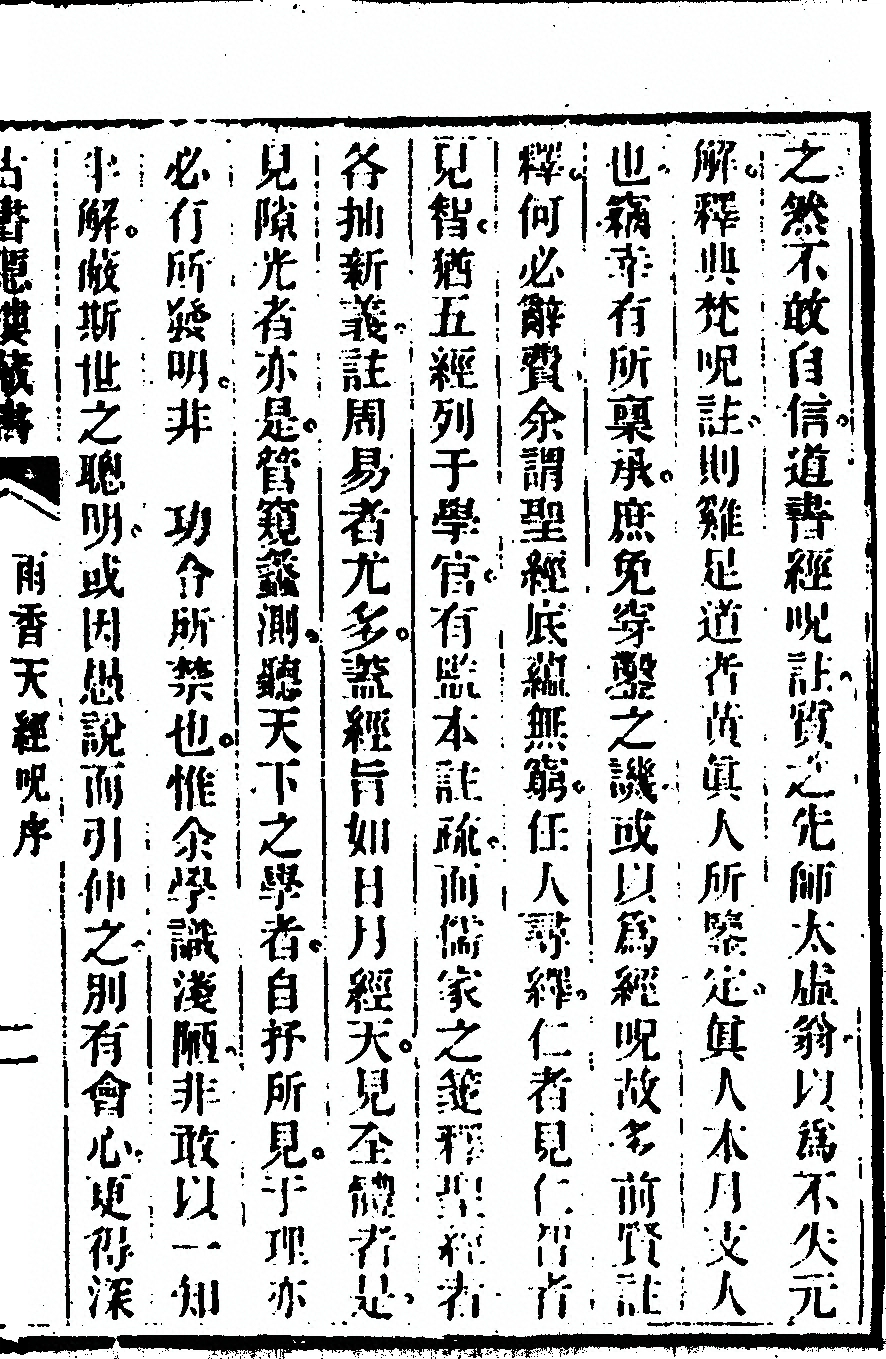 之然不敢自信道書經呪註質之先師太虛翁以爲不失元
解釋典梵呪註則雞足道者黃眞人所鑒定眞人本月支人
也竊幸有所稟承庶免穿鑿之譏或以爲經呪故多前賢註
釋何必辭費余謂聖經底蘊無窮任人尋繹仁者見仁智者
見智猶五經列于學官有監本註疏而儒家之箋釋聖經者
各抽新義註周易者尤多蓋經旨如日月經天見全體者是
見隙光者亦是管窺蠡測聽天下之學者自抒所見于理亦
必有所發明非 功令所禁也惟余學識淺陋非敢以一知
半解蔽斯世之聰明或因愚說而引伸之別有會心更得深
古書隱樓藏書
雨香天經呪序
二